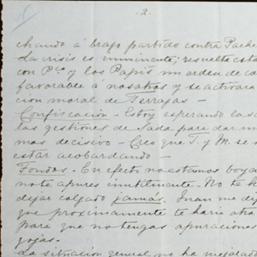 2.
chando á brazo partido contra Pache
La crisis es inminente; resuelta esta
con Pco y los Papis un orden de co
favorable á nosotros y se activara
cion moral de Terrazas —
Confiscación — Estoy esperando las
las gestiones de Sada para dar un
mas decisivo — Creo que T. y M. se
estar acobardando —
Fondos. En efecto no estamos boya
no te apures inutilmente. No te h
dejar colgado jamás. Juan me di
que proximamente te haria otra
para que no tengas apuraciones
yojas.
La situación general me ha mejorado